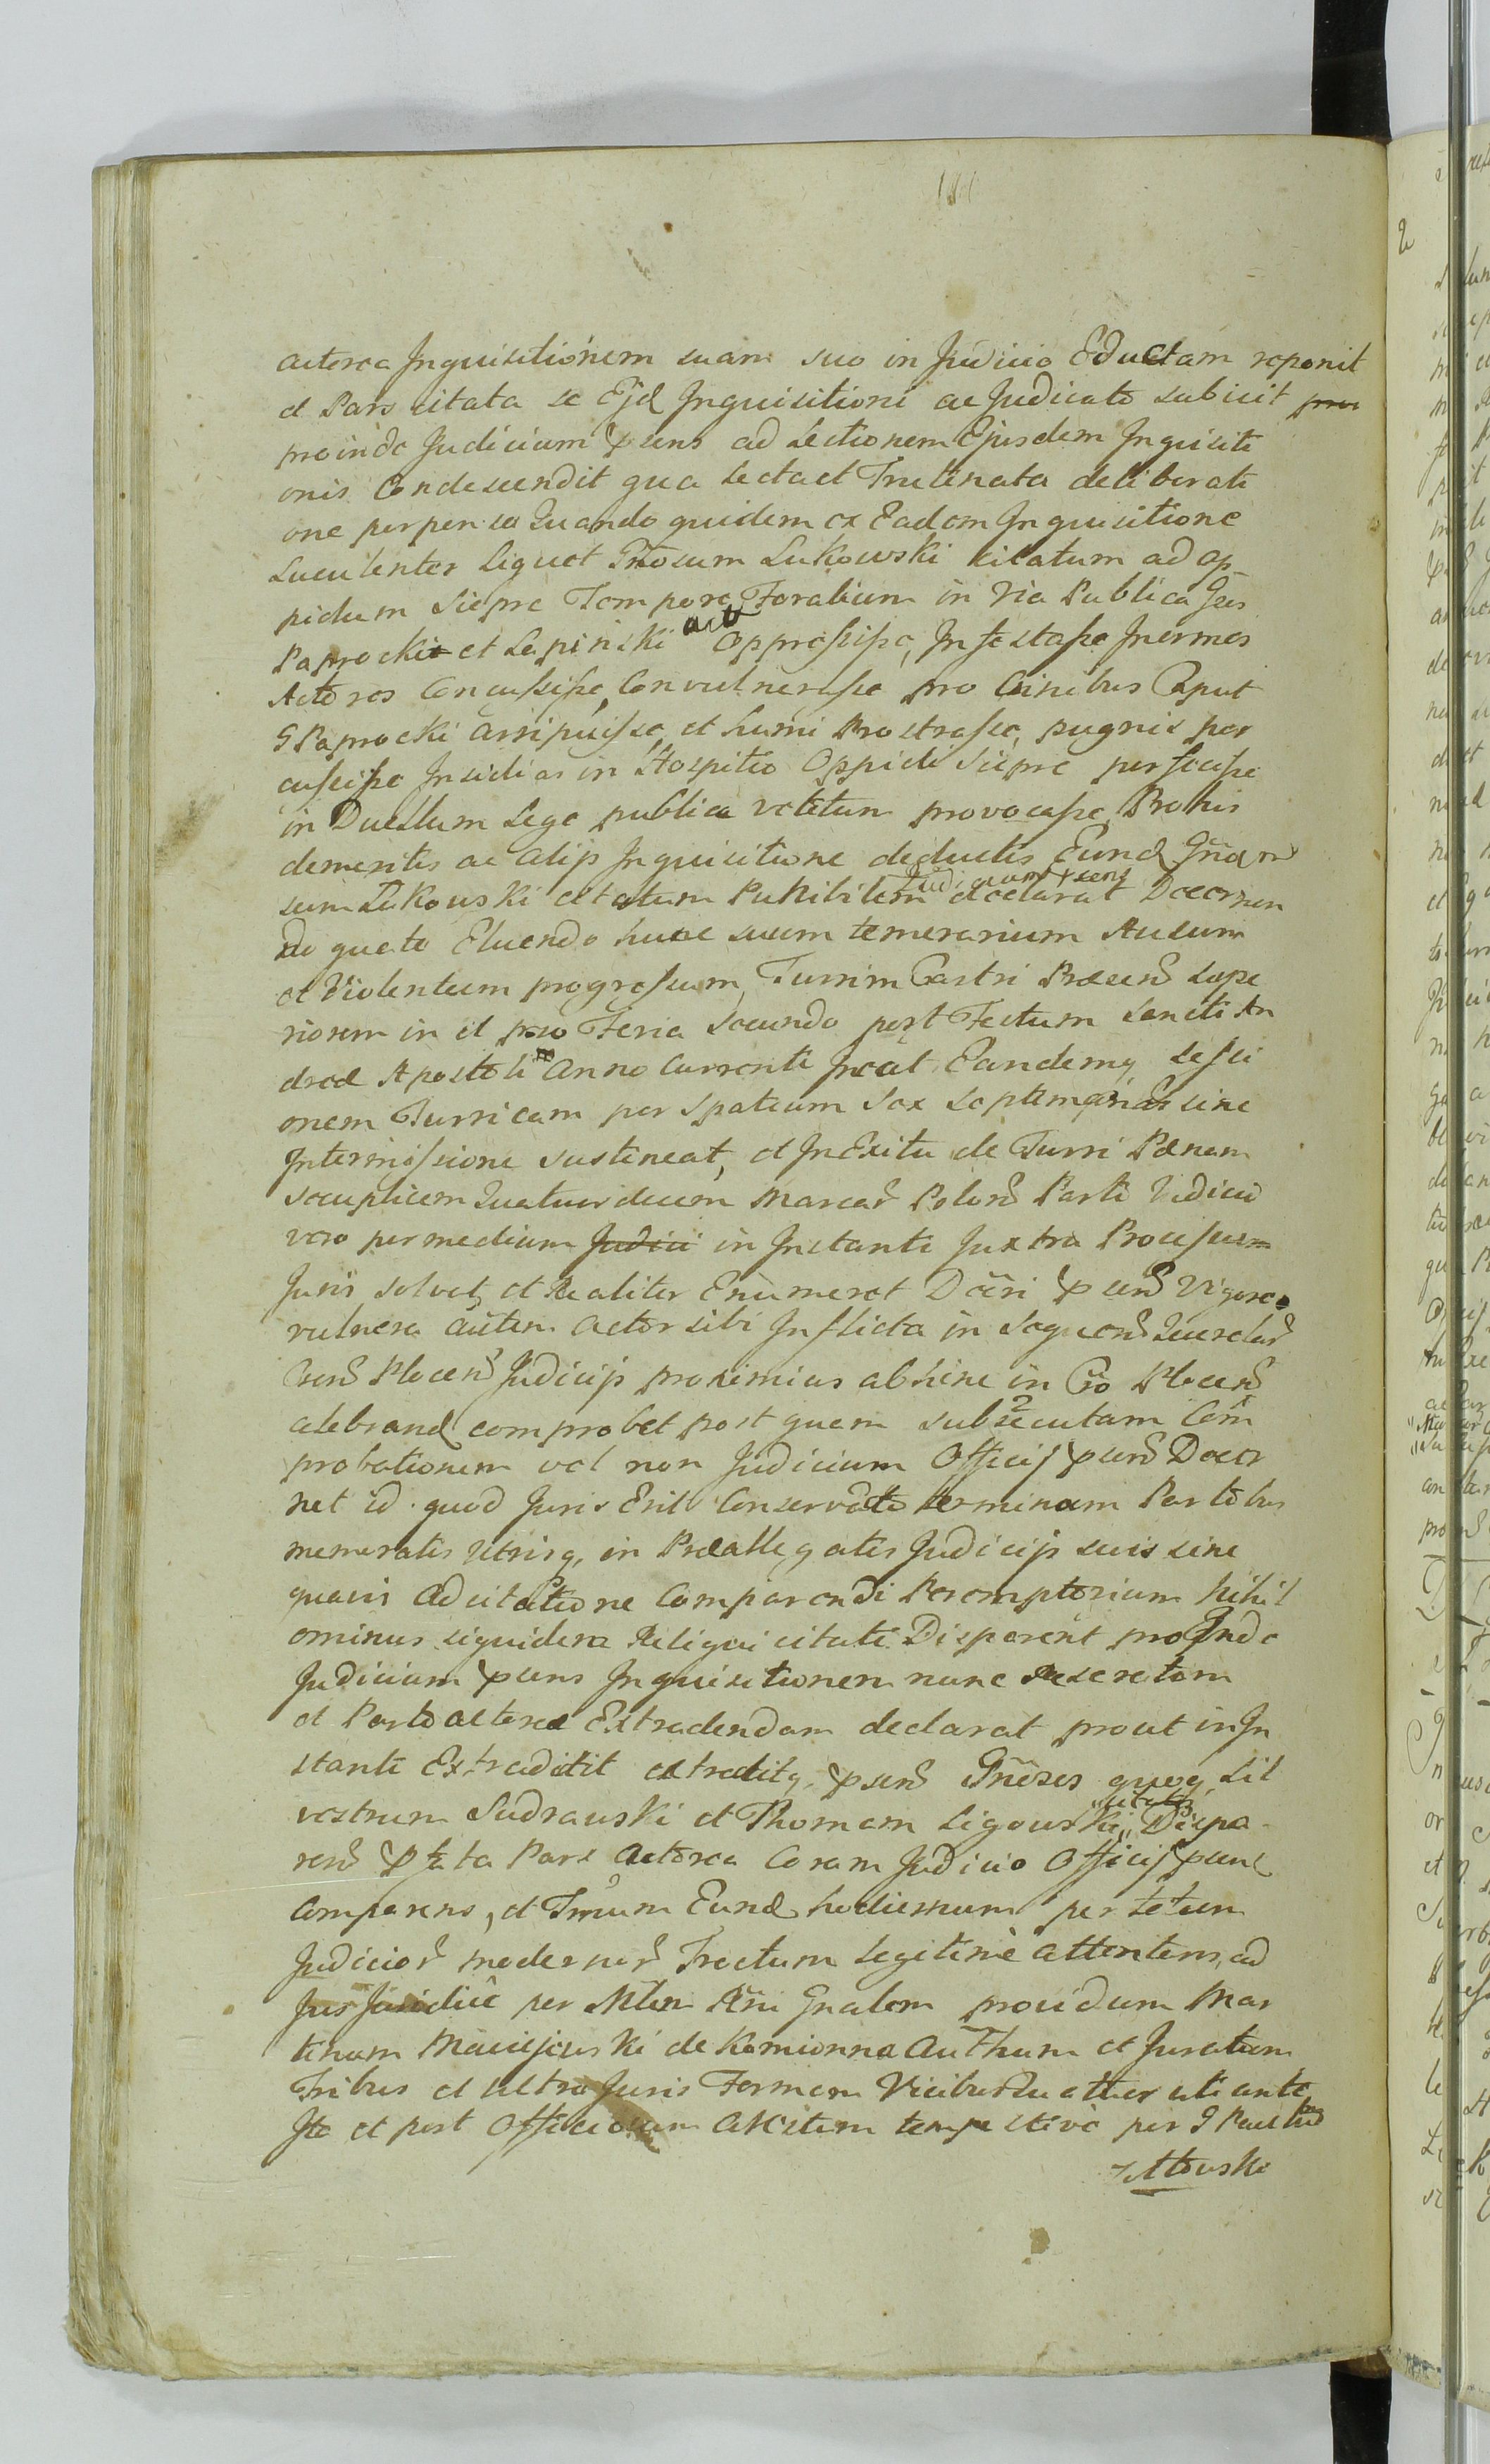 actorea Inquisitionem suam suo in Judicio Eductam reponit
et Pars citata se Ejd Inquisitioni ac Judicato subicit
proinde Judicium psens ad Lectionem Ejusdem Inquisiti
onis Condescendit qua Lecta et Trutinata deliberati
one perpensa Quando quidem ex Eadem Inquisitione
Luculenter Liquet Gnosum Lukowski citatum ad op
pidum Siepre Tempore Foralium in Via Publica Gsos
Paprocki et Lapinski Oppressisse, Infestasse Inermes
Actores Concussisse, Convulnerasse pro Crinibus Caput
G Paprocki arripuisse, et humi Prostrasse, pugnis per
cussisse Insidias in Hospitio Oppidi Siepre perfecisse
in Duellum Lege publica vetitum provocasse, Pro his
demeritis ac alijs Inquisitione deductis Eund Gnaro
sum Lukowski citatum Punibilem Judicium psens declarat Decernen
do quate Eluendo hunc suum temerarium Ausum
et Violentum progressum, Turrim Castri Praesens supe
riorem in et pro Feria Secunda post Festum Sancti An
dreae Apostoli Anno Currenti Ineat Eandemq sessi
onem Turricam per Spatium Sex Septimanar sine
Intermissione sustineat, et In Exitu de Turri Paenam
Quatuordecem Marcar Polon Parti Judicio
vero per medium Judici in Instanti Juxtra Processum
Juris solvat, et Realiter Enumeret Dcri psens Vigore
vulnera autem actor sibi Inflicta in Sequens Querelar
Cens Plocen Judicijs proximius abhinc in Cro Plocens
celebrand comprobet post quam subsecutam Com
probationem vel non Judicium Officij psens Decer
net id quod Juris Erit Conservato terminum Partibus
memoratis Utrisq, in Praeallegatis Judicijs suis sine
quavis adcitatione Comparendi Peremptorium Nihil
ominus siquidem Reliqui citati Disparent proinde
Judicium psens Inquisitionem nunc Reseratam
et Parte actorea Extradendam declarat prout in In
stanti Extradidit extraditq, psens Gnosos quoq Sil
vestrum Sudrauski et Thomam Ligouski citatos Dispa
rens Pars Actorea Coram Judicio Officij psens
Comparens, et Tmum Eund hodiernum per totum
Judicior modernor Tractum Legitime attentans, ad
Jus Juridice per Mlem Rni Gnalem providum Mar
tinum Maciejeuski de Kamionna Authum et Juratum
Tribus et ultra Juris Formam Vicibus Quatuor uti ante
Ita et post Officiosum Arestum tempestive per G Paulum
Zottouski